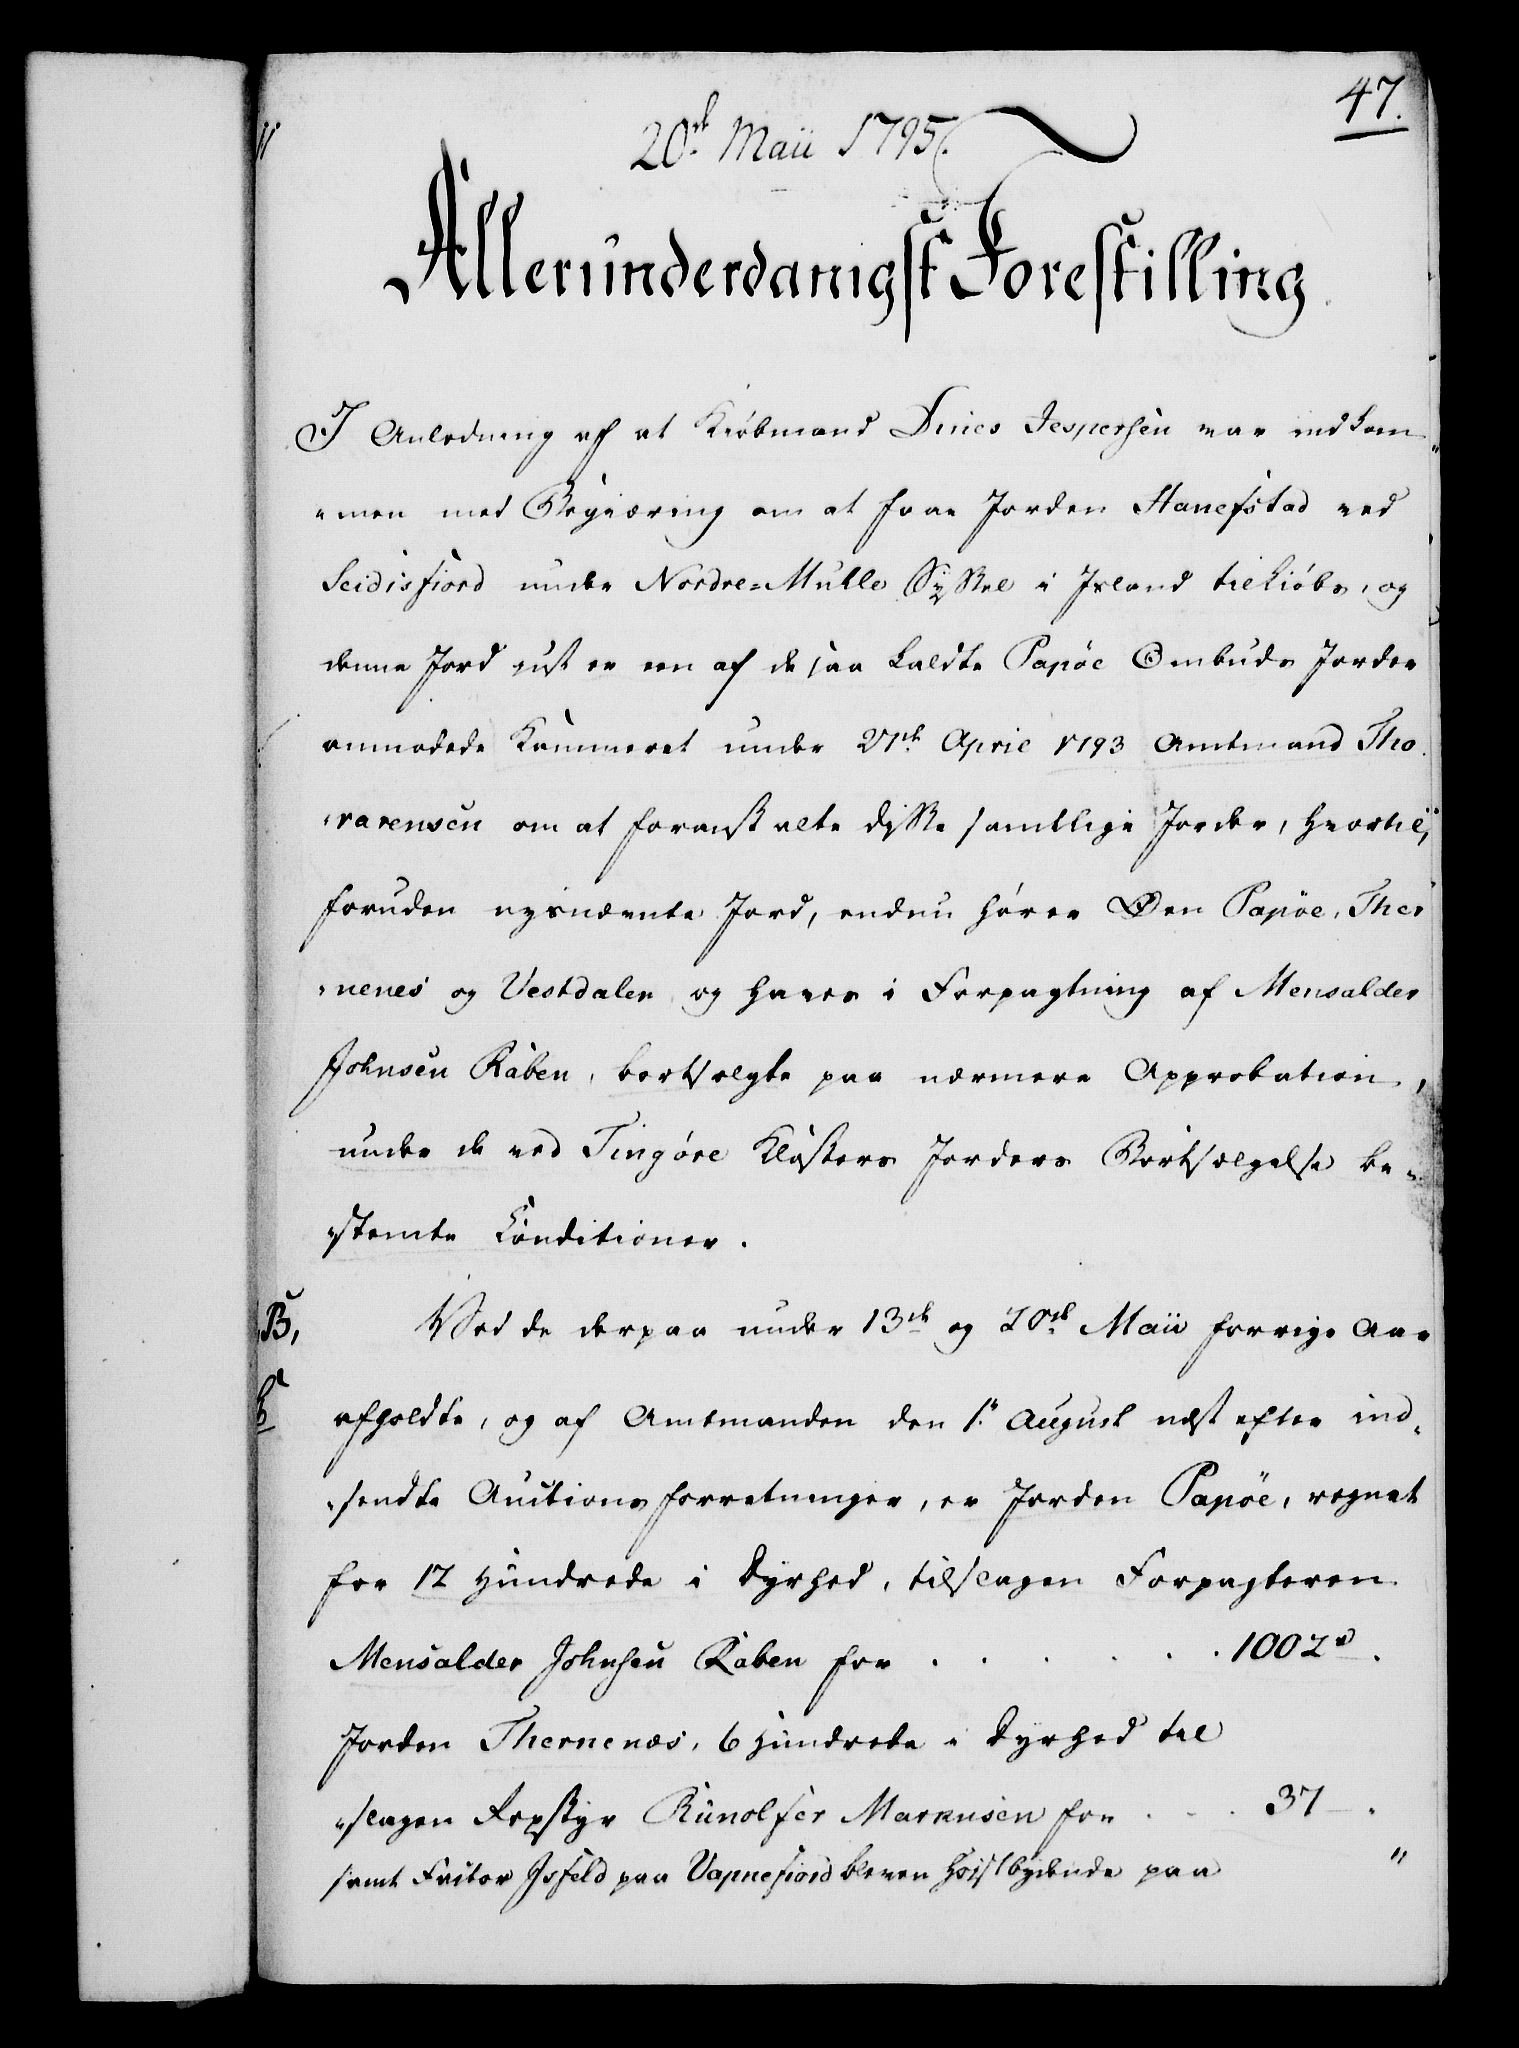 47.
20de Maii 1795.
Allerunderdanigst Forestilling
I Anledning af at Kiøbmand Dines Jespersen var indkom„
„men med Begiæring om at faae Jorden Hanefstad ved
Seidisfiord under Nordre=Muhle Syssel i Island tilkiøbs, og
denne Jord just er een af de saa kaldte Papøe Ombuds Jorder
anmodede Kammeret under 27de April 1793 Amtmand Tho„
„rarensen om at foranstalte disse samtlige Jorder, hvortil,
foruden nysnævnte Jord, endnu hører Øen Papøe, Ther„
„nenes og Vestdalen og haves i Forpagtning af Mensalder
Johnsen Raben, bortsolgte paa nærmere Approbation,
under de ved Tingøre Klosters Jorders Bortsælgelse be„
„stemte Conditioner.
B, Ved de derpaa under 13de og 20de Maii forrige Aar
afholdte, og af Amtmanden den 1te August næst efter ind„
„sendte Auctions forretninger, er Jorden Papøe, regnet
for 12 Hundrede i Dyrhed, tilslagen Forpagteren
Mensalder Johnsen Raben for . . . . . . 1002rd.
Jorden Thernenæs, 6 Hundrede i Dyrhed til
„slagen Repstyr Runolfer Markusen for . . . 37 — .
samt Factor Isfeld paa Vapnefiord bleven Høistbydende paa
"